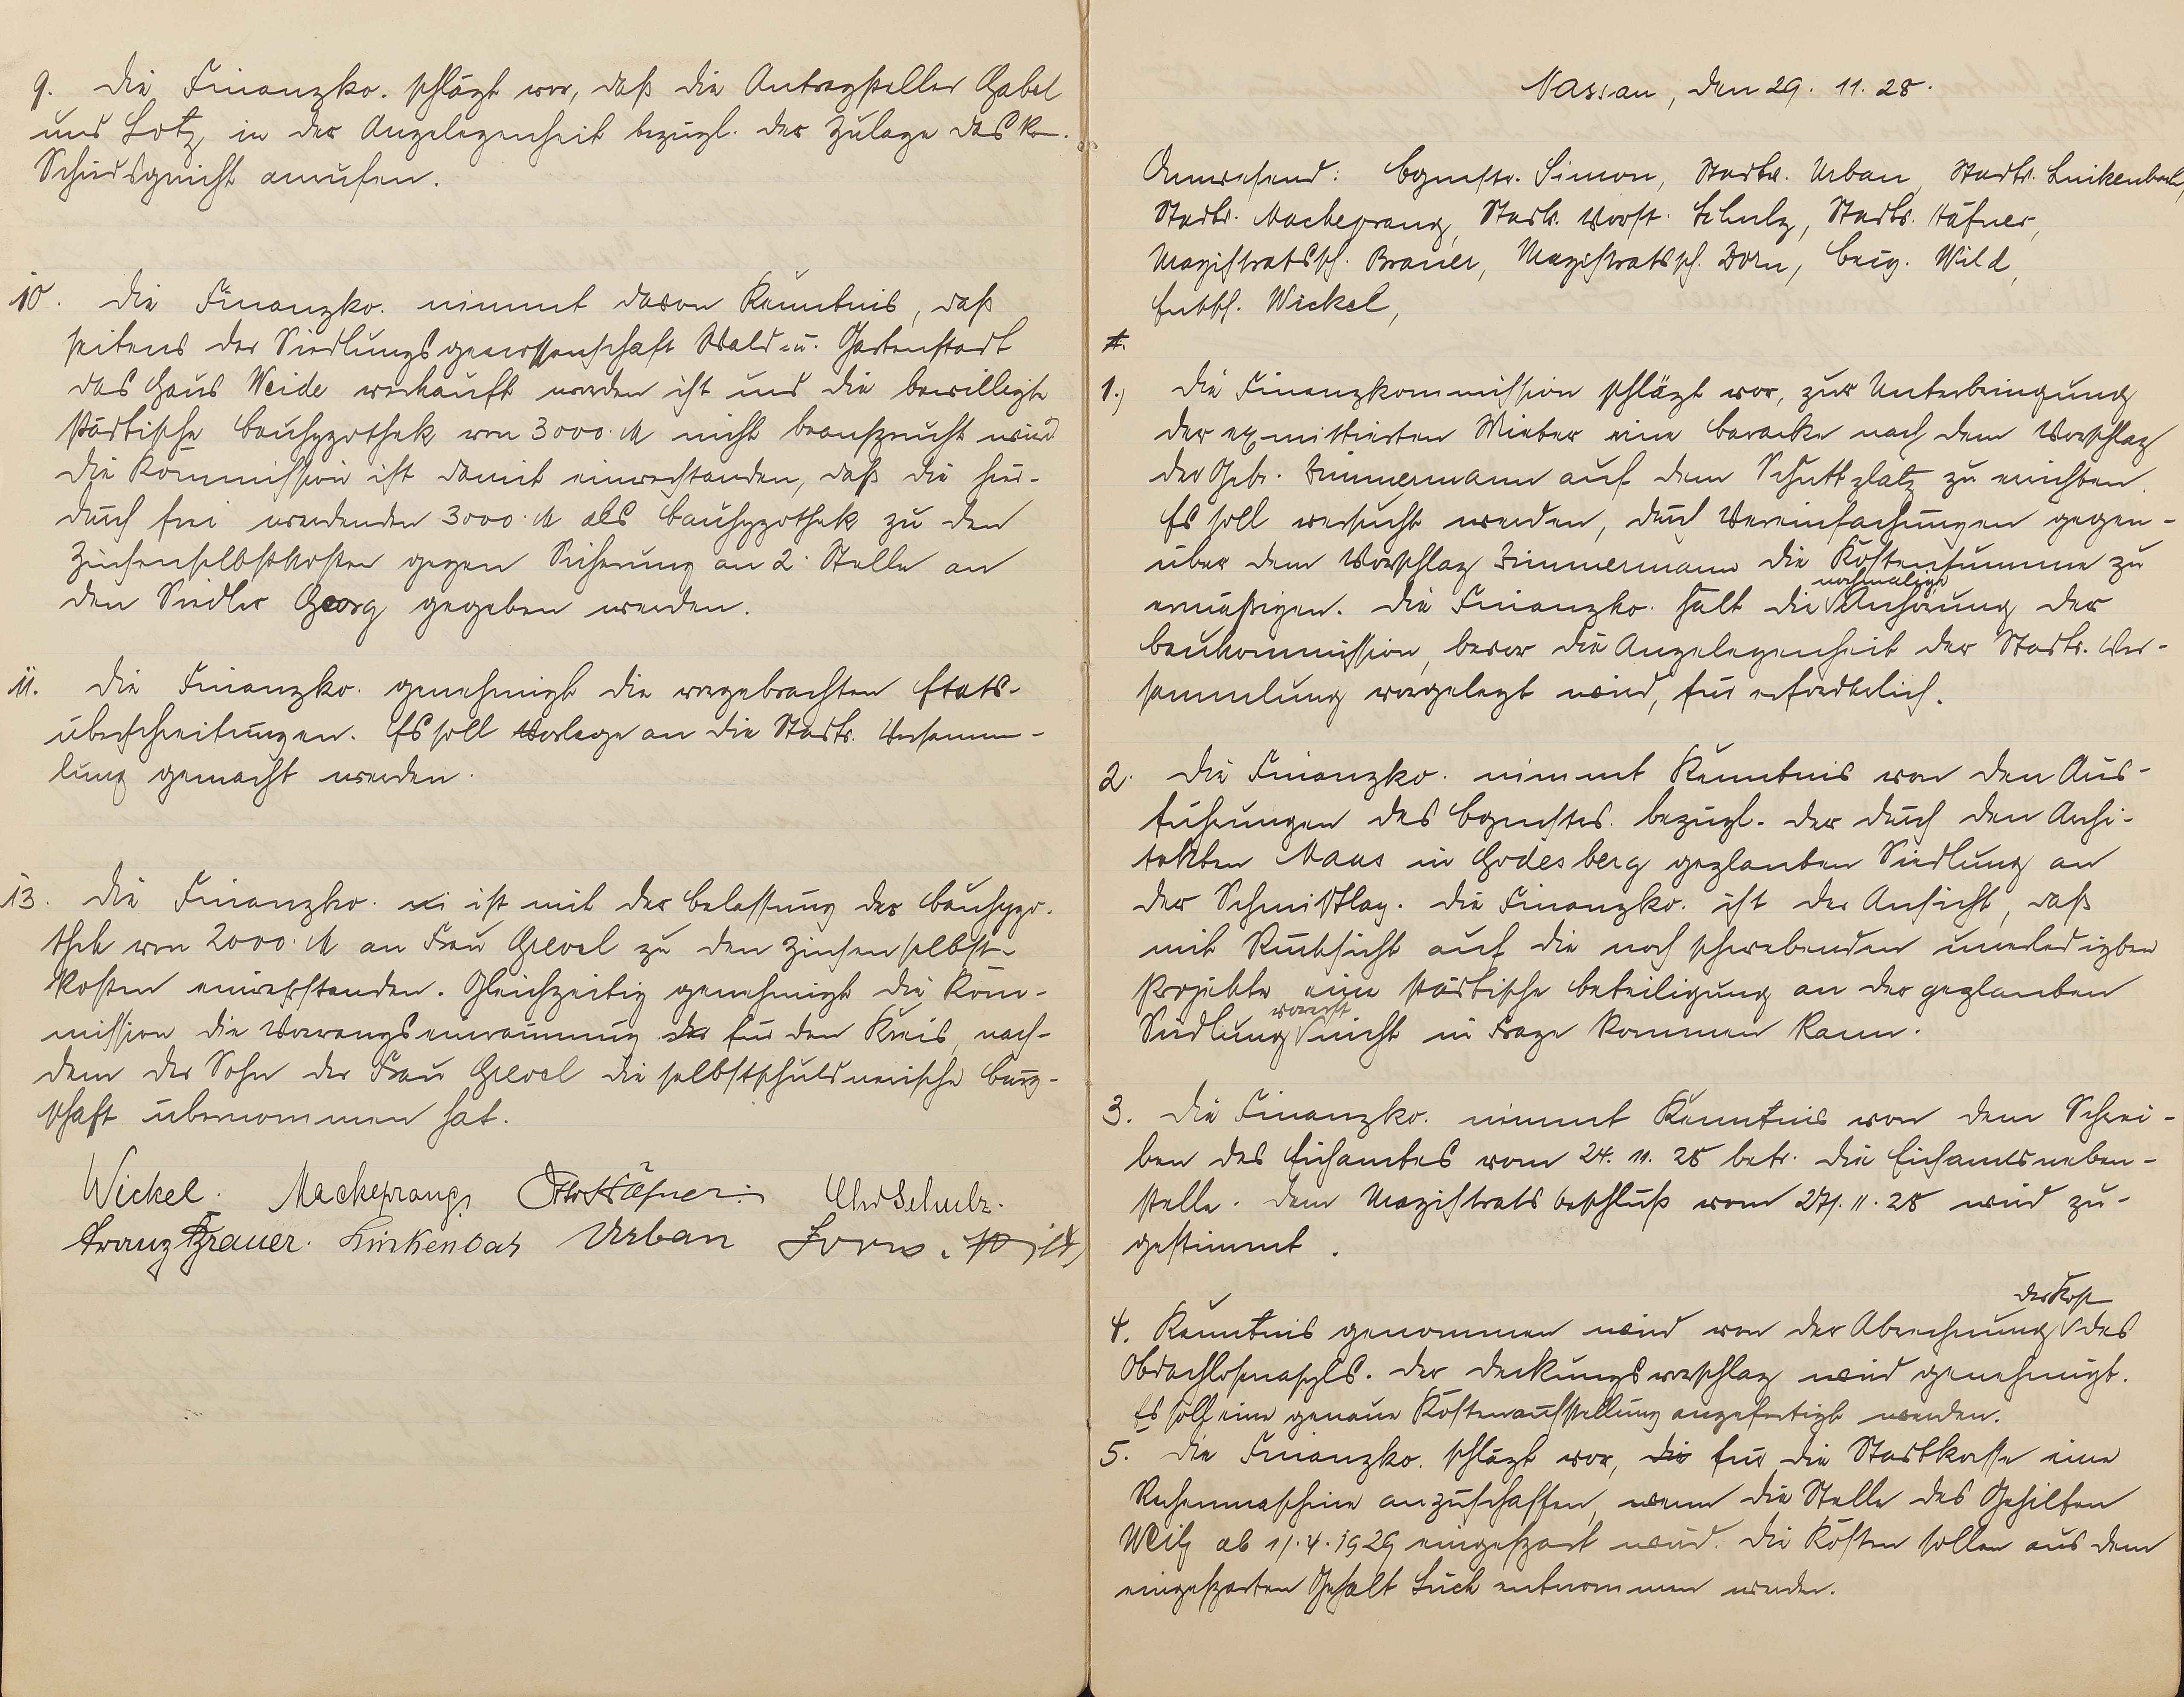 9. Die Finanzko. schlägt vor, daß die Antragsteller Gabel
und Lotz in der Angelegenheit bezügl. der Zulage das
Schiedsgericht anrufen.
10. Die Finanzko. nimmt davon Kenntnis, daß
seitens der Siedlungsgenossenschaft Wald- u. Gartenstadt
das Haus Weide verkauft worden ist und die bewilligte
städtische Bauhypothek von 3000 M nicht beansprucht wird
Die Kommission ist damit einverstanden, daß die hier-
durch frei werdenden 3000 M als Bauhypothek zu den
Zinsenselbstkosten gegen Sicherung an 2. Stelle an
den Siedler Georg gegeben werden.
11. Die Finanzko. genehmigt die vorgebrachten Etats-
überschreitungen. Es soll Vorlage an die Stadtv. Versamm-
lung gemacht werden.
13. Die Finanzko. ist mit der Belassung der Bauhypo-
thek von 2000 M an Frau Grevel zu den Zinsenselbst-
kosten einverstanden. Gleichzeitig genehmigt die Kom-
mission die Vorrangseinräumung für den Kreis, nach-
dem der Sohn der Frau Grevel die selbstschuldnerische Bürg-
schaft übernommen hat.
Wickel. Mackeprang Otto Häfner. Chr Schulz.
Franz Brauer. Linkenbach Urban Dorn. Wild
Nassau, den 29. 11. 28.
Anwesend: Bgmstr. Simon, Stadtv. Urban, Stadtv. Linkenbach,
Stadtv. Mackeprang, Stadtv. Vorst. Schulz, Stadtv. Häfner,
Magistratssch. Brauer, Magistratssch. Dorn, Beig. Wild,
Wickel,
1.) Die Finanzkommission schlägt vor, zur Unterbringung
der exmittierten Mieter eine Baracke nach dem Vorschlag
der Gebr. Zimmermann auf dem Schuttplatz zu errichten.
Es soll versucht werden, durch Vereinfachungen gegen-
über dem Vorschlag Zimmermann die Kostensumme zu
ermäßigen. Die Finanzko. hält die nochmalige Anhörung der
Baukommission, bevor die Angelegenheit der Stadtv. Ver-
sammlung vorgelegt wird, für erforderlich.
2. Die Finanzko. nimmt Kenntnis von den Aus-
führungen des Bgmstrs. bezügl. der durch den Archi-
tekten Maus in Godesberg geplanten Siedlung an
der Schmittlay. Die Finanzko. ist der Ansicht, daß
mit Rücksicht auf die noch schwebenden unerledigten
Projekte eine städtische Beteiligung an der geplanten
Siedlung vorerst nicht in Frage kommen kann.
3. Die Finanzko. nimmt Kenntnis von dem Schrei-
ben des Eichamtes vom 24. 11. 28 betr. die Eichamtsneben-
stelle. Dem Magistratsbeschluß vom 27. 11. 28 wird zu-
gestimmt.
4. Kenntnis genommen wird von der Abrechnung der Kost. des
Obdachlosenasyls. Der Deckungsvorschlag wird genehmigt.
Es soll eine genaue Kostenaufstellung angefertigt werden.
5. Die Finanzko. schlägt vor, die für die Stadtkasse eine
Rechenmaschine anzuschaffen, wenn die Stelle des Gehilfen
Weis ab 1.4.1929 eingespart wird. Die Kosten sollen aus dem
eingesparten Gehalt Lück entnommen werden.